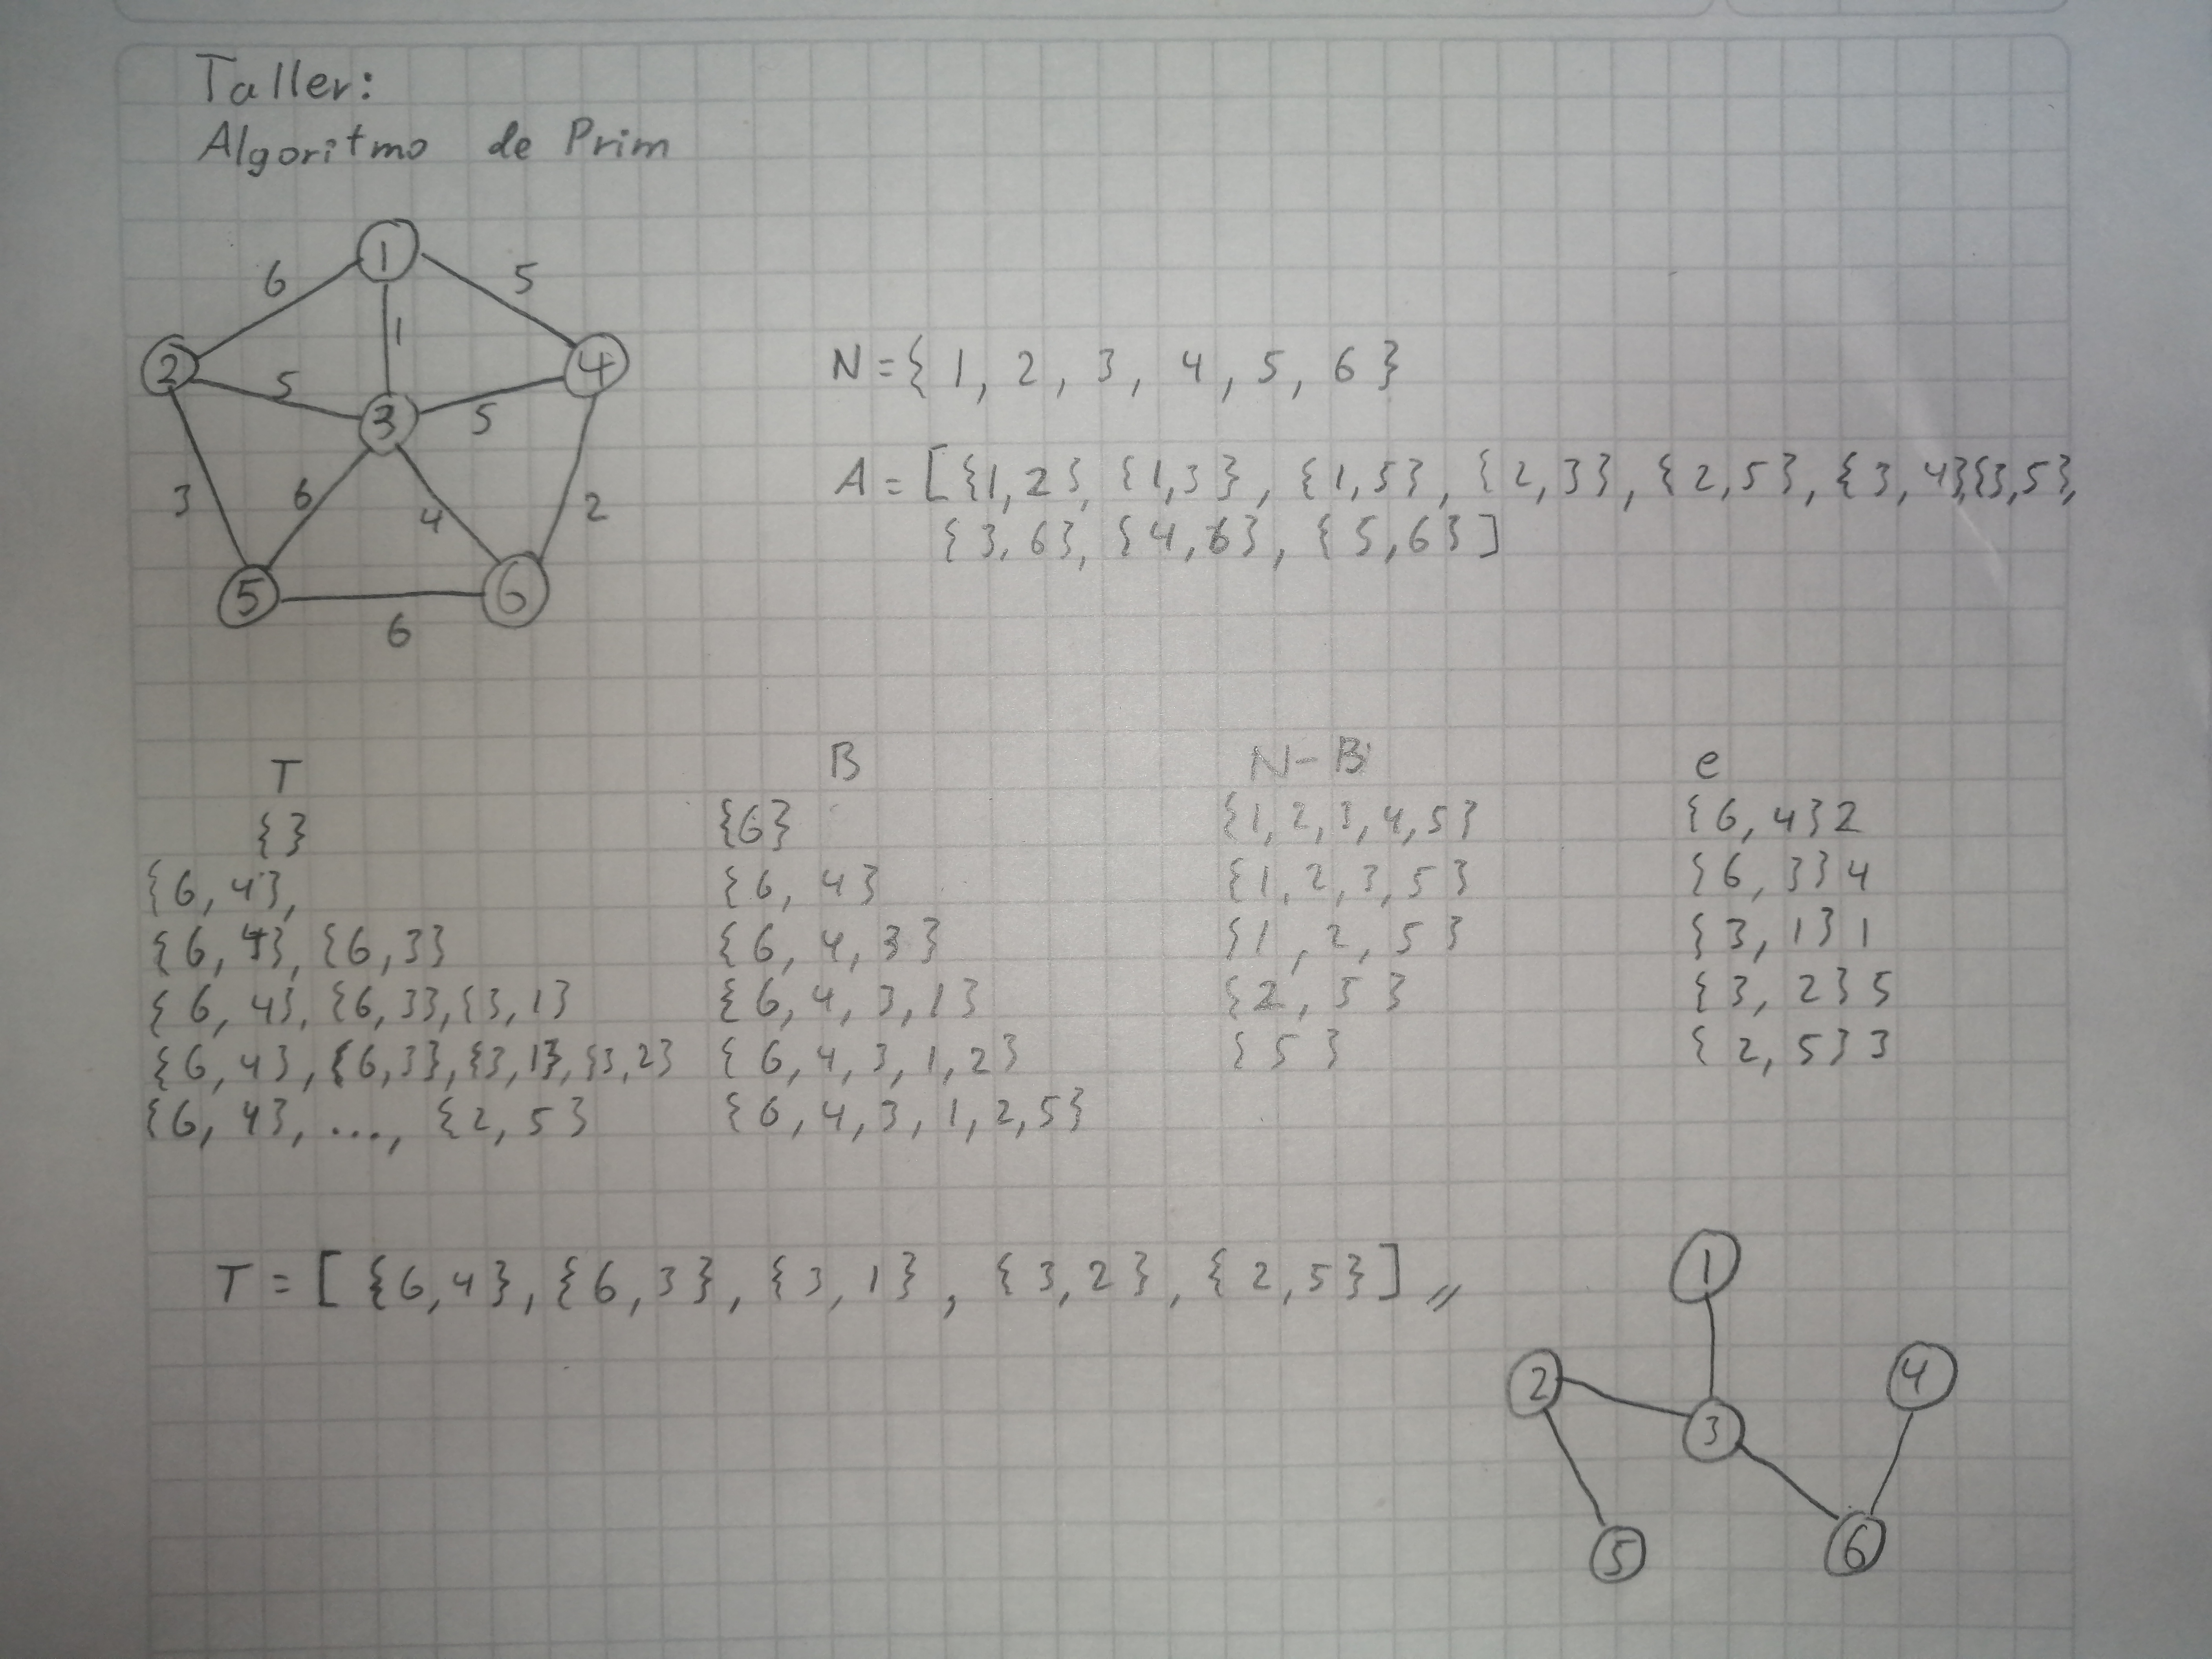 Taller:
Algoritmo de Prim
1
6
5
1
2
4
5
3
5
3
6
4
2
5
6
6
N={ 1, 2, 3, 4, 5, 6 }
A = [{1,2}, {1,3}, {1,5}, {2,3}, {2,5}, {3,4},{3,5},
{3,6}, {4,6}, {5,6}]
T B N-B e
{} {6} {1,2,3,4,5} {6,4}2
{6,4}, {6, 4} {1,2,3,5} {6,3}4
{6,4}, {6,3} {6, 4, 3} {1, 2, 5} {3, 1}1
{6, 4}, {6,3},{3,1} {6, 4, 3, 1} {2, 5} {3, 2}5
{6, 4}, {6,3},{3,1},{3,2} {6, 4, 3, 1, 2} {5} {2, 5}3
{6, 4}, ..., {2, 5} {6, 4, 3, 1, 2, 5}
T = [ {6,4}, {6,3}, {3,1}, {3,2}, {2,5} ] //
1
2
4
3
5
6